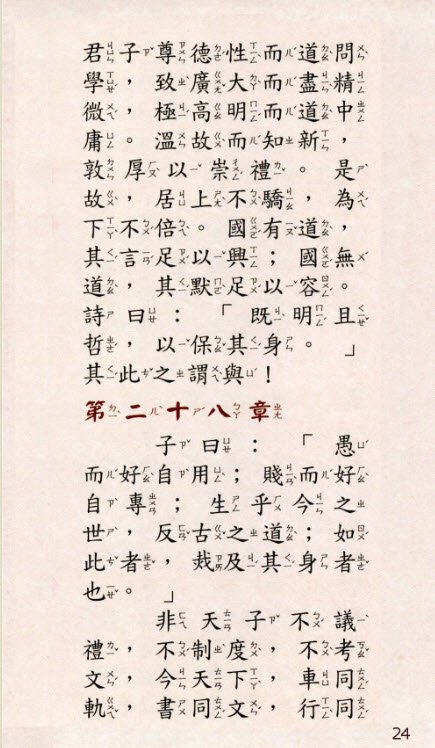 君子尊德性而道問
學，致廣大而盡精
微，極高明而道中
庸。溫故而知新，
敦厚以崇禮。是
故，居上不驕，為
下不倍。國有道，
其言足以興；國無
道，其默足以容。
詩曰：「既明且
哲，以保其身。」
其此之謂與！
第二十八章
子曰：「愚
而好自用；賤而好
自專；生乎今之
世，反古之道；如
此者，烖及其身者
也。」
非天子不議
禮，不制度，不考
文，今天下，車同
軌，書同文，行同
24